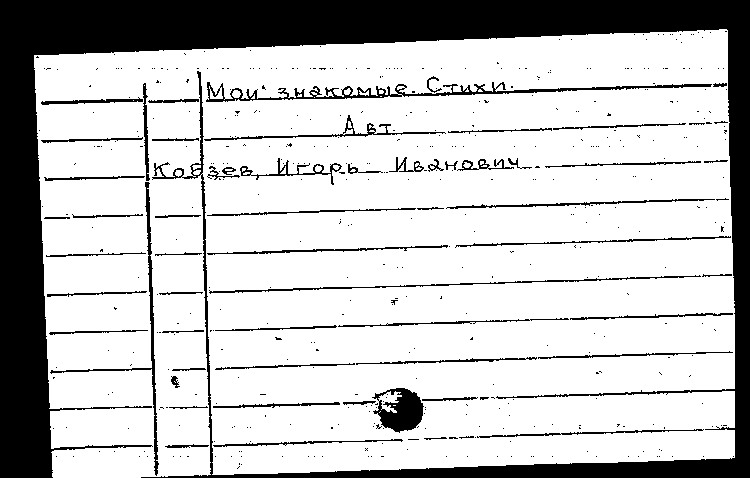 Мои знакомые. Стихи.
Авт.
Кобзев, Игорь Иванович